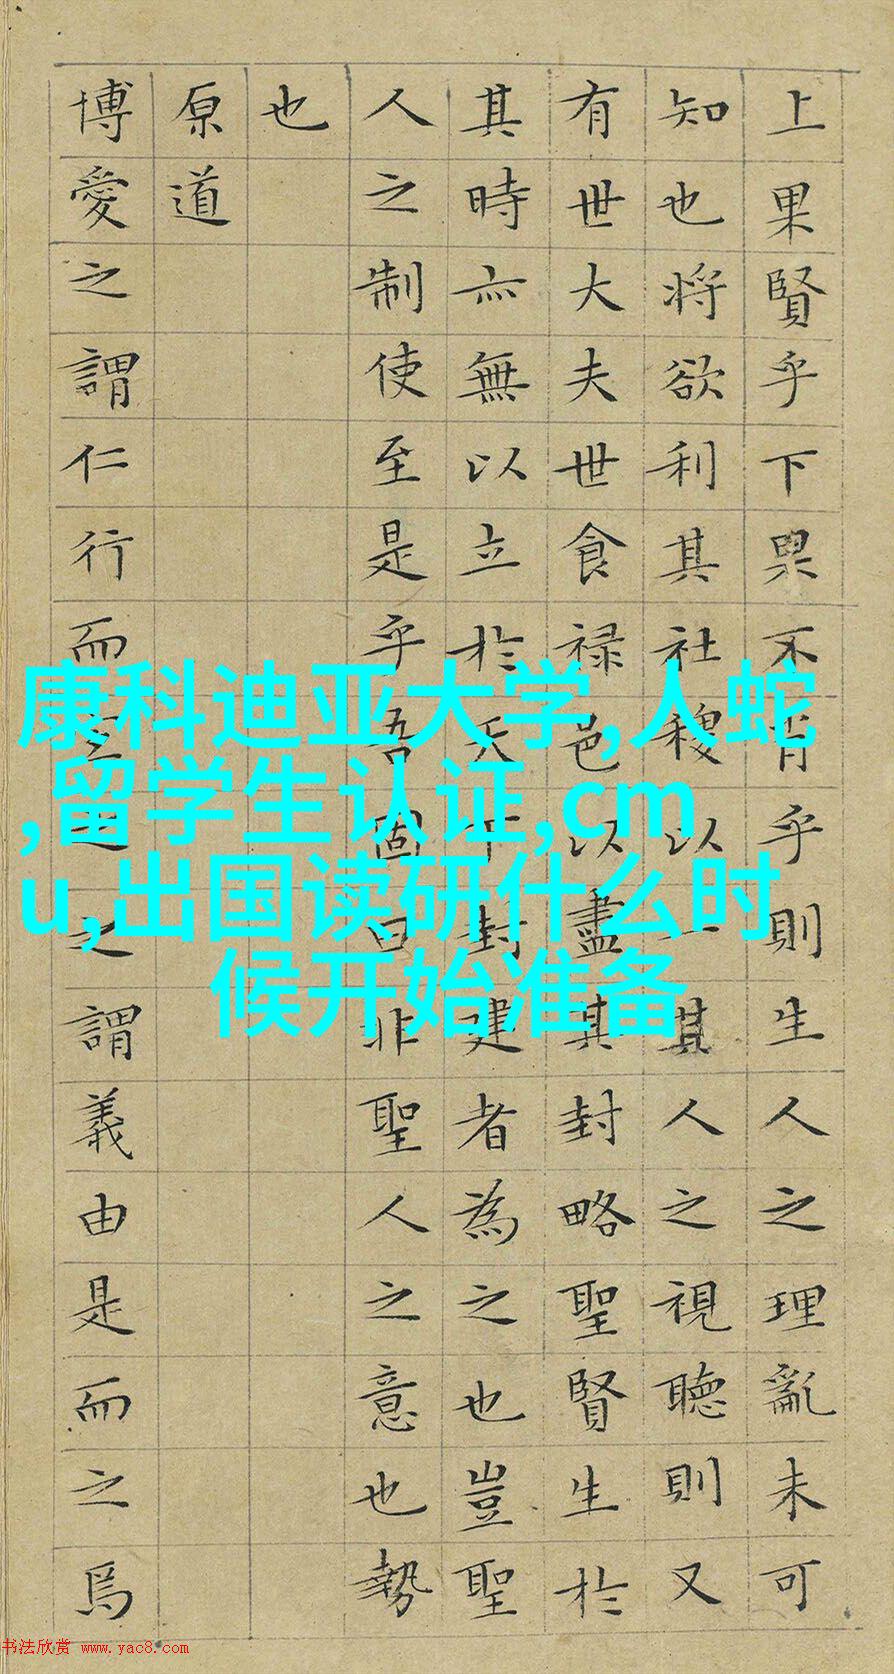 上果賢乎下果不肖乎則生人之理亂未可
知也将欲利其社稷以一其人之視聽則又
有世大夫世食禄邑以盡其封略聖賢生於
其時亦無以立於天下封建者為之也豈聖
人之制使至是乎吾固曰非聖人之意也勢
也
原道
博愛之謂仁行而宜之之謂義由是而之焉
康科迪亚大学,人蛇
,留学生认证,cm
u,出国读研什么时
候开始准备
书法欣赏 www.yac8.com